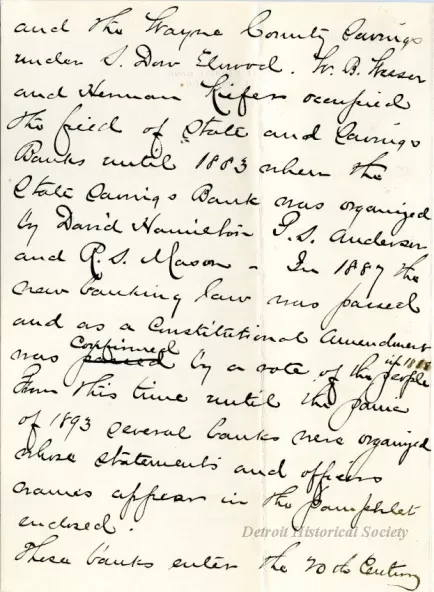 and the Wayne County Savings
under S. Dow Elwood. W. B. Wesson
and Herman Kiefer occupied
the field of State and Savings
Banks until 1883 when the
State Savings Bank was organized
by David Hamilton T. S. Anderson
and R. S. Mason - In 1887 the
new banking law was passed
and as a Constitutional Amendment
was passed Confirmed by a vote of the people in 1888
From this time until the panic
of 1893 several banks were organized
whose statements and officers
names appear in the Pamphlet
enclosed.
These banks enter the 20th Century
Detroit Historical Society